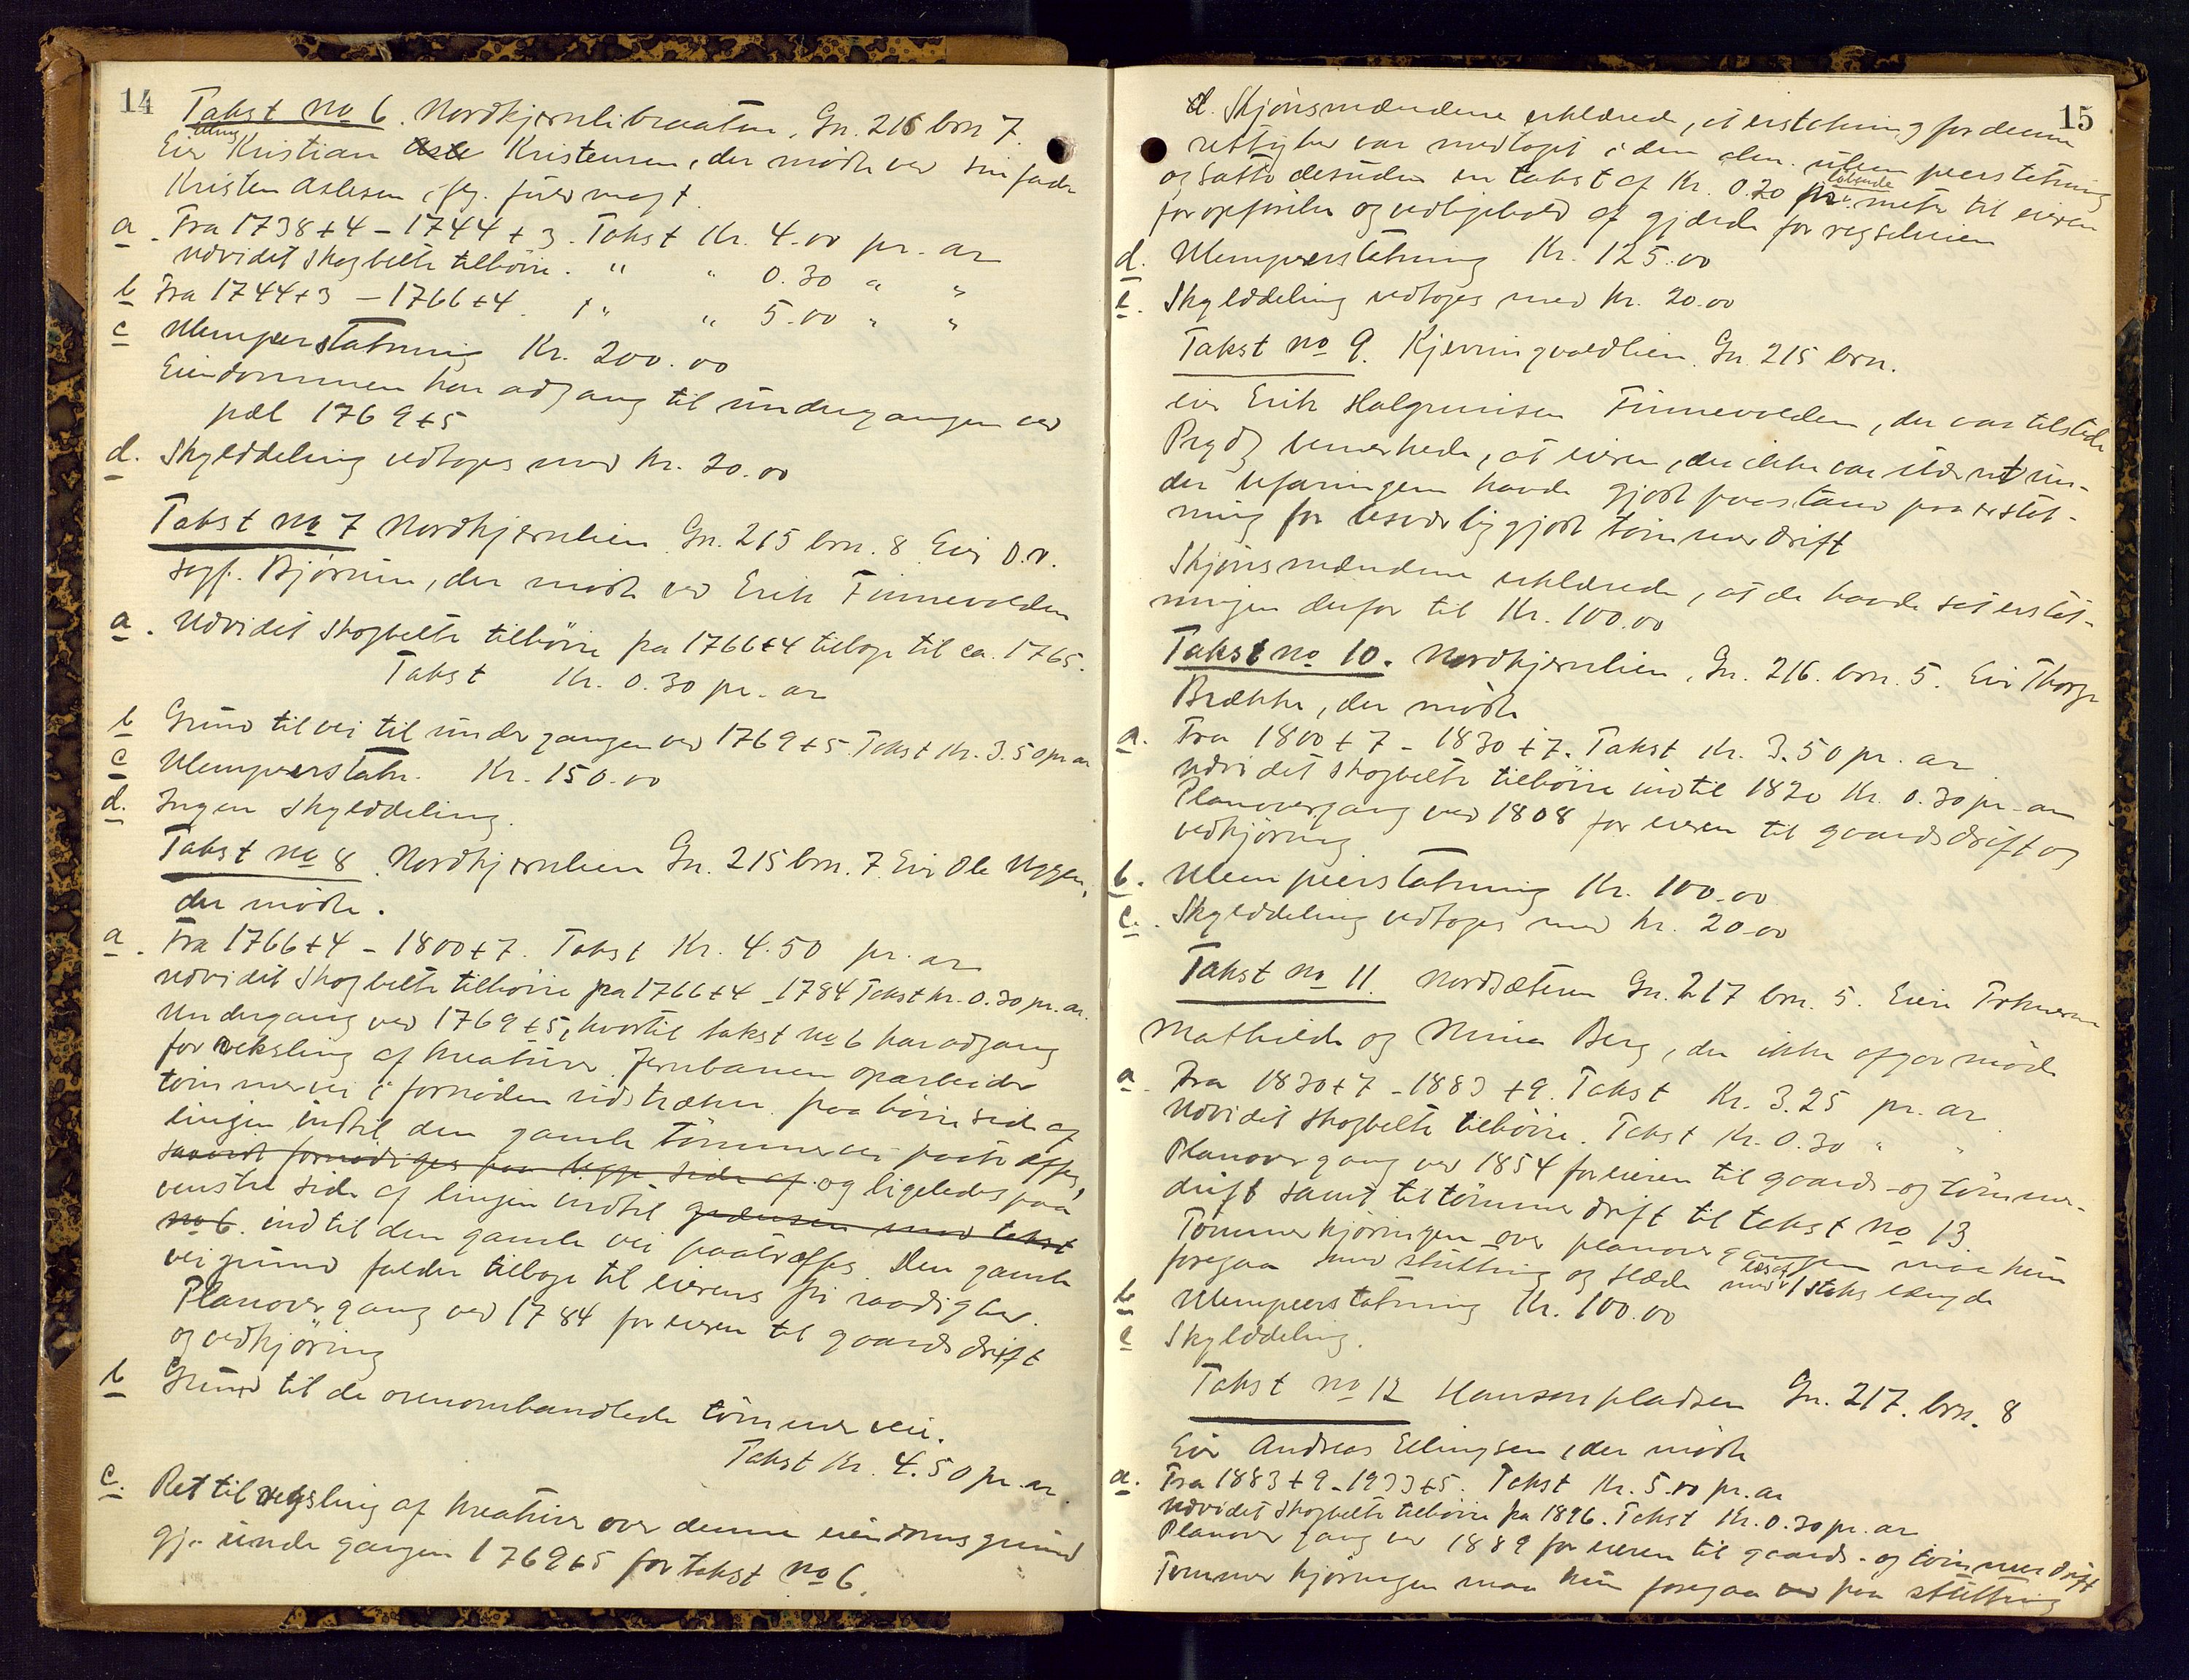 14
Takst no 6. Nordkjernlibraaten. Gn. 216 brn 7.
Eier Kristian Kristensen, der mødte ved sin fader
Kristen Aslesen, fg. fuldmagt.
a. Fra 1738+4 – 1744+3. Takst Kr. 4.00 pr. ar
Udvidet skogbelte tilhøire. " " 0.30 " "
b Fra 1744+3 – 1766+4. " " 5.00 " "
c Ulempeerstatning Kr. 200.00
Eiendommen har adgang til undergangen ved
pæl 1769+5
d. Skylddeling vedtoges med Kr. 20.00
Takst no 7 Nordkjernlien. Gn. 215 brn. 8. Eier O.r.
sagf. Bjørum, der mødte ved Erik Finnevolden
a. Udvidet skogbelte tilhøire fra 1766+4 tilbage til ca. 1765.
Takst Kr. 0.30 pr. ar
b Grund til vei til undergangen ved 1769+5. Takst Kr. 3.50 pr. ar
c Ulempeerstatn. Kr. 150.00
d. Ingen skylddeling.
Takst no 8. Nordkjernlien Gn. 215 brn. 7. Eier Ole Uggen,
der mødte.
a. Fra 1766+4 – 1800+7. Takst Kr. 4.50 pr. ar
Udvidet skogbelte tilhøire fra 1766+4 – 1784 Takst Kr. 0.30 pr. ar.
Undergang ved 1769+5, hvortil takst no 6 har adgang
for veksling af kreaturer. Jernbanen oparbeider
tømmervei i fornøden udstrækn. paa høire side af
linjen indtil den gamle tømmervei paatræffes,
saavidt fornødiges paa begge sider af og ligeledes paa
venstre side af linjen indtil grænsen mod takst
no 6. indtil den gamle vei paatræffes. Den gamle
veigrund falder tilbage til eierens fri raadighed.
Planovergang ved 1784 for eieren til gaardsdrift
og vedkjøring
b Grund til de ovenomhandlede tømmerveie.
Takst Kr. 4.50 pr. ar.
c. Ret til veksling af kreaturer over denne eiendoms grund
gj. undergangen 1769+5 for takst no 6.
15
d. Skjønsmændene erklærede, at erstatning for denne
rettighed var medtaget i den alm. ulempeerstatning
og satte desuden en takst af Kr. 0.20 pr. løbende meter til eieren
for opførelse og vedligehold af gjærde for vegselveien
d. Ulempeerstatning Kr. 125.00
e. Skylddeling vedtoges med Kr. 20.00
Takst no 9. Kjerringvoldlien. Gn. 215 brn.
eier Erik Halgrimsen Finnevolden, der var tilstede
Prydz bemerkede, at eieren, der ikke var stævnet un-
der befaringen havde gjort paastand paa erstat-
ning for besværliggjort tømmerdrift
Skjønsmændene erklærede, at de havde sat erstat-
ningen derfor til Kr. 100.00
Takst no 10. Nordkjernlien, Gn. 216. brn. 5. Eier Thorge
Brække, der mødte
a. Fra 1800+7 – 1830+7. Takst Kr. 3.50 pr. ar
Udvidet skogbelte tilhøire indtil 1820 Kr. 0.30 pr. ar
Planovergang ved 1808 for eieren til gaardsdrift og
vedkjøring
b. Ulempeerstatning Kr. 100.00
c. Skylddeling vedtoges med Kr. 20.00
Takst no 11. Nordsæteren Gn. 217 brn. 5. Eiere Frknerne
Mathilde og Mina Berg, der ikke afgav møde
a. Fra 1830+7 – 1883+9. Takst Kr. 3.25 pr. ar
Udvidet skogbelte tilhøire. Takst Kr. 0.30 " "
Planovergang ved 1854 for eieren til gaards- og tømmer-
drift samt til tømmerdrift til takst no 13.
Tømmerkjøringen over planovergangen maa kun
foregaa med stutting og slæde med læs af 1 stoks længde
b Ulempeerstatning Kr. 100.00
c Skylddeling.
Takst no 12 Hansenpladsen Gn. 217. brn. 8
Eier Andreas Ellingsen, der mødte
a. Fra 1883+9 – 1933+5. Takst Kr. 5.00 pr. ar
Udvidet skogbelte tilhøire fra 1896. Takst Kr. 0.30 pr. ar
Planovergang ved 1889 for eieren til gaards- og tømmerdrift
Tømmerkjøringen maa kun foregaa ved paa stutting